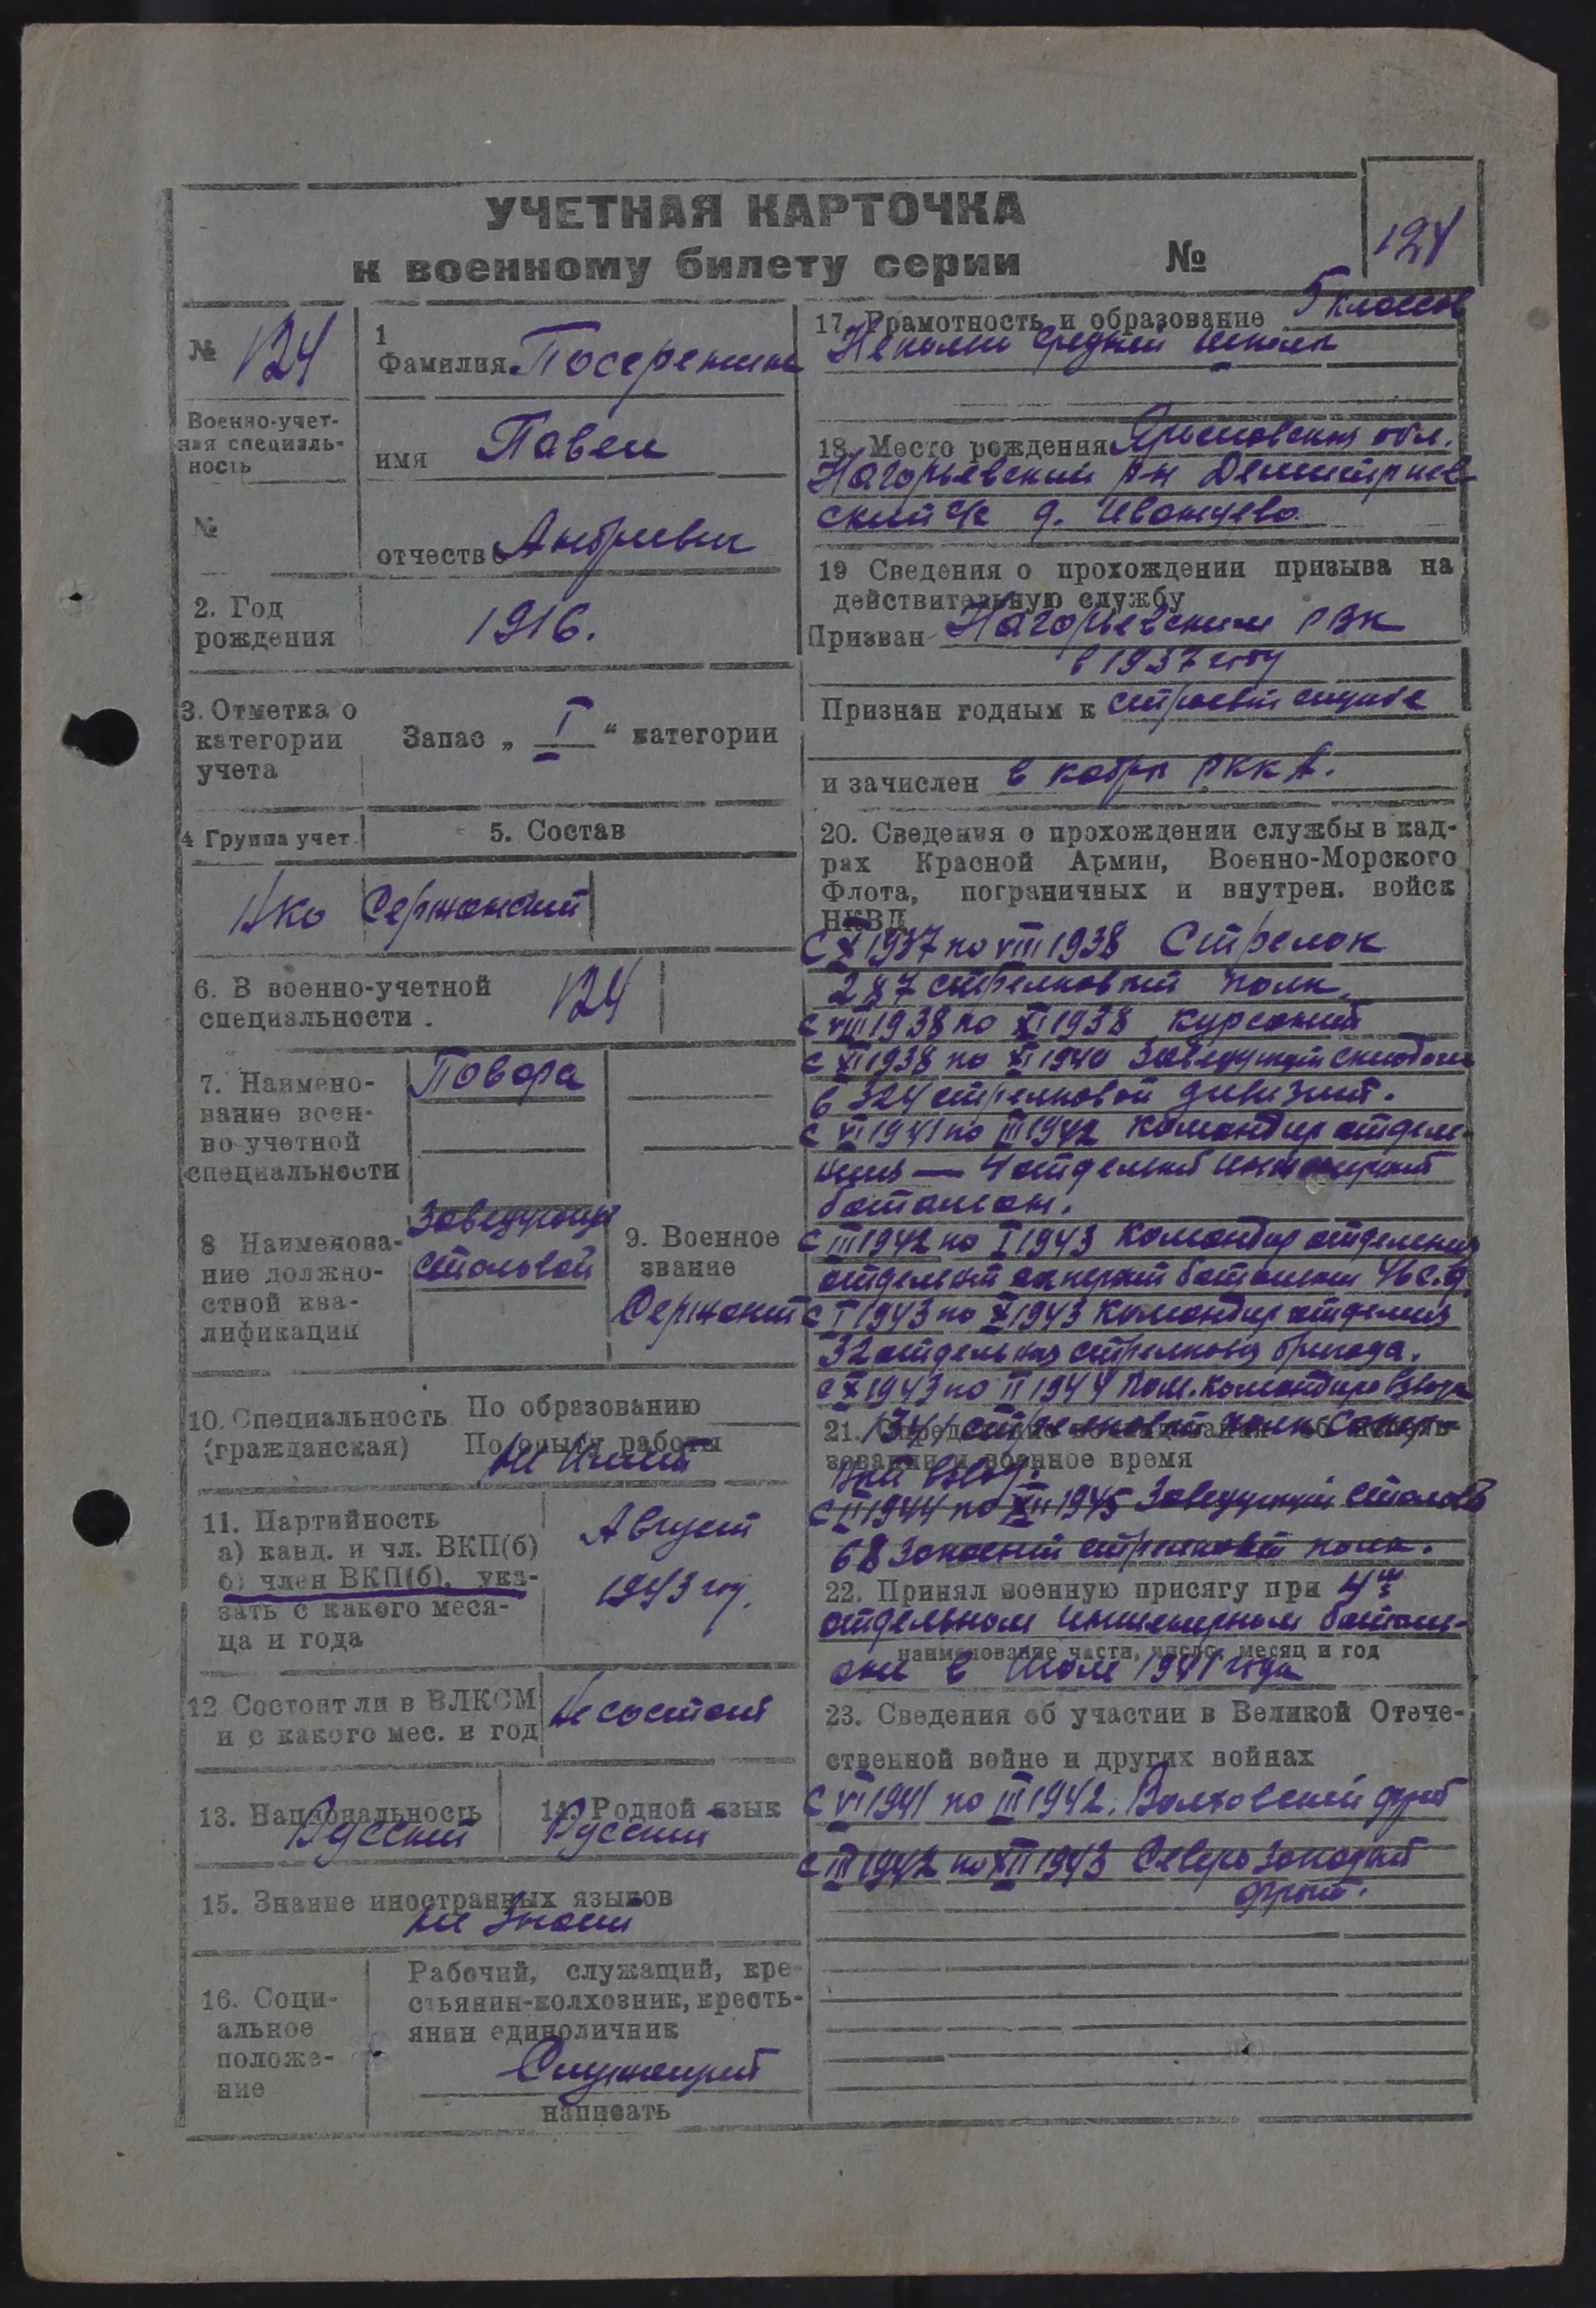 УЧЕТНАЯ КАРТОЧКА
к военному билету серии №
124
№ 124
Военно-учет-
ная специаль-
ность
№
1
Фамилия Посеренник
имя Павел
отчество Андриевич
2. Год
рождения
1916.
3. Отметка о
категории
учета
Запас „ I “ категории
4 Группа учет.
5. Состав
Сержанский
6. В военно-учетной
специальности.
124
7. Наимено-
вание воен-
во-учетной
специальности
Повора
8 Наименова-
ние должно-
стной ква-
лификации
Заведующ
столовой
9. Военное
звание
Сержант
10. Специальность
(гражданская)
По образованию
По опыту работы
не имеет
11. Партийность
а) канд. и чл. ВКП(б)
б) член ВКП(б), ука-
зать с какого меся-
ца и года
Август
1943 год.
12 Состоит ли в ВЛКСМ
и с какого мес. и год
Не состоит
13. Национальность
Русский
14. Родной язык
Русский
15. Знание иностранных языков
не знает
16. Соци-
альное
положе-
ние
Рабочий, служащий, кре-
стьянин-колхозник, кресть-
янин единоличник
Служащий
написать
17. Грамотность и образование 5 классов
Неполн средней школы
18. Место рождения Ярославская обл.
Нагорьевский р-н Демитриев-
ский с/с д. Иванцево.
19 Сведения о прохождении призыва на
действительную службу
Призван Нагорьевским РВК
в 1937 году
Признан годным к строевой службе
и зачислен в кадры РККА.
20. Сведения о прохождении службы в кад-
рах Красной Армии, Военно-Морского
Флота, пограничных и внутрен. войск
НКВД
С X 1937 по VIII 1938 Стрелок
287 стрелковый полк.
с VIII 1938 по XI 1938 курсант
с XI 1938 по XI 1940 Заведующий складом
в 324 стрелковой дивизии.
с VI 1941 по III 1942 Командир отделе-
ния — 4 отдельный инженерный
батальон.
с III 1942 по I 1943 Командир отделения
отдельный саперный батальон с.д.
с I 1943 по X 1943 Командир отделения
32 отдельная стрелковая бригада.
с X 1943 по II 1944 Пом. командира взвода
1341 стрелковый полк Сапер-
ный взвод.
21. Определение об исполь-
зовании в военное время
с II 1944 по XII 1945 Заведующий столовой
68 Запасной стрелковый полк.
22. Принял военную присягу при 4м
отдельном инженерном батальо-
наименование части, число, месяц и год
оне в Июле 1941 года
23. Сведения об участии в Великой Отече-
ственной войне и других войнах
С VI 1941 по III 1942. Волховский фронт
с III 1942 по XII 1943 Северо Западный
фронт.